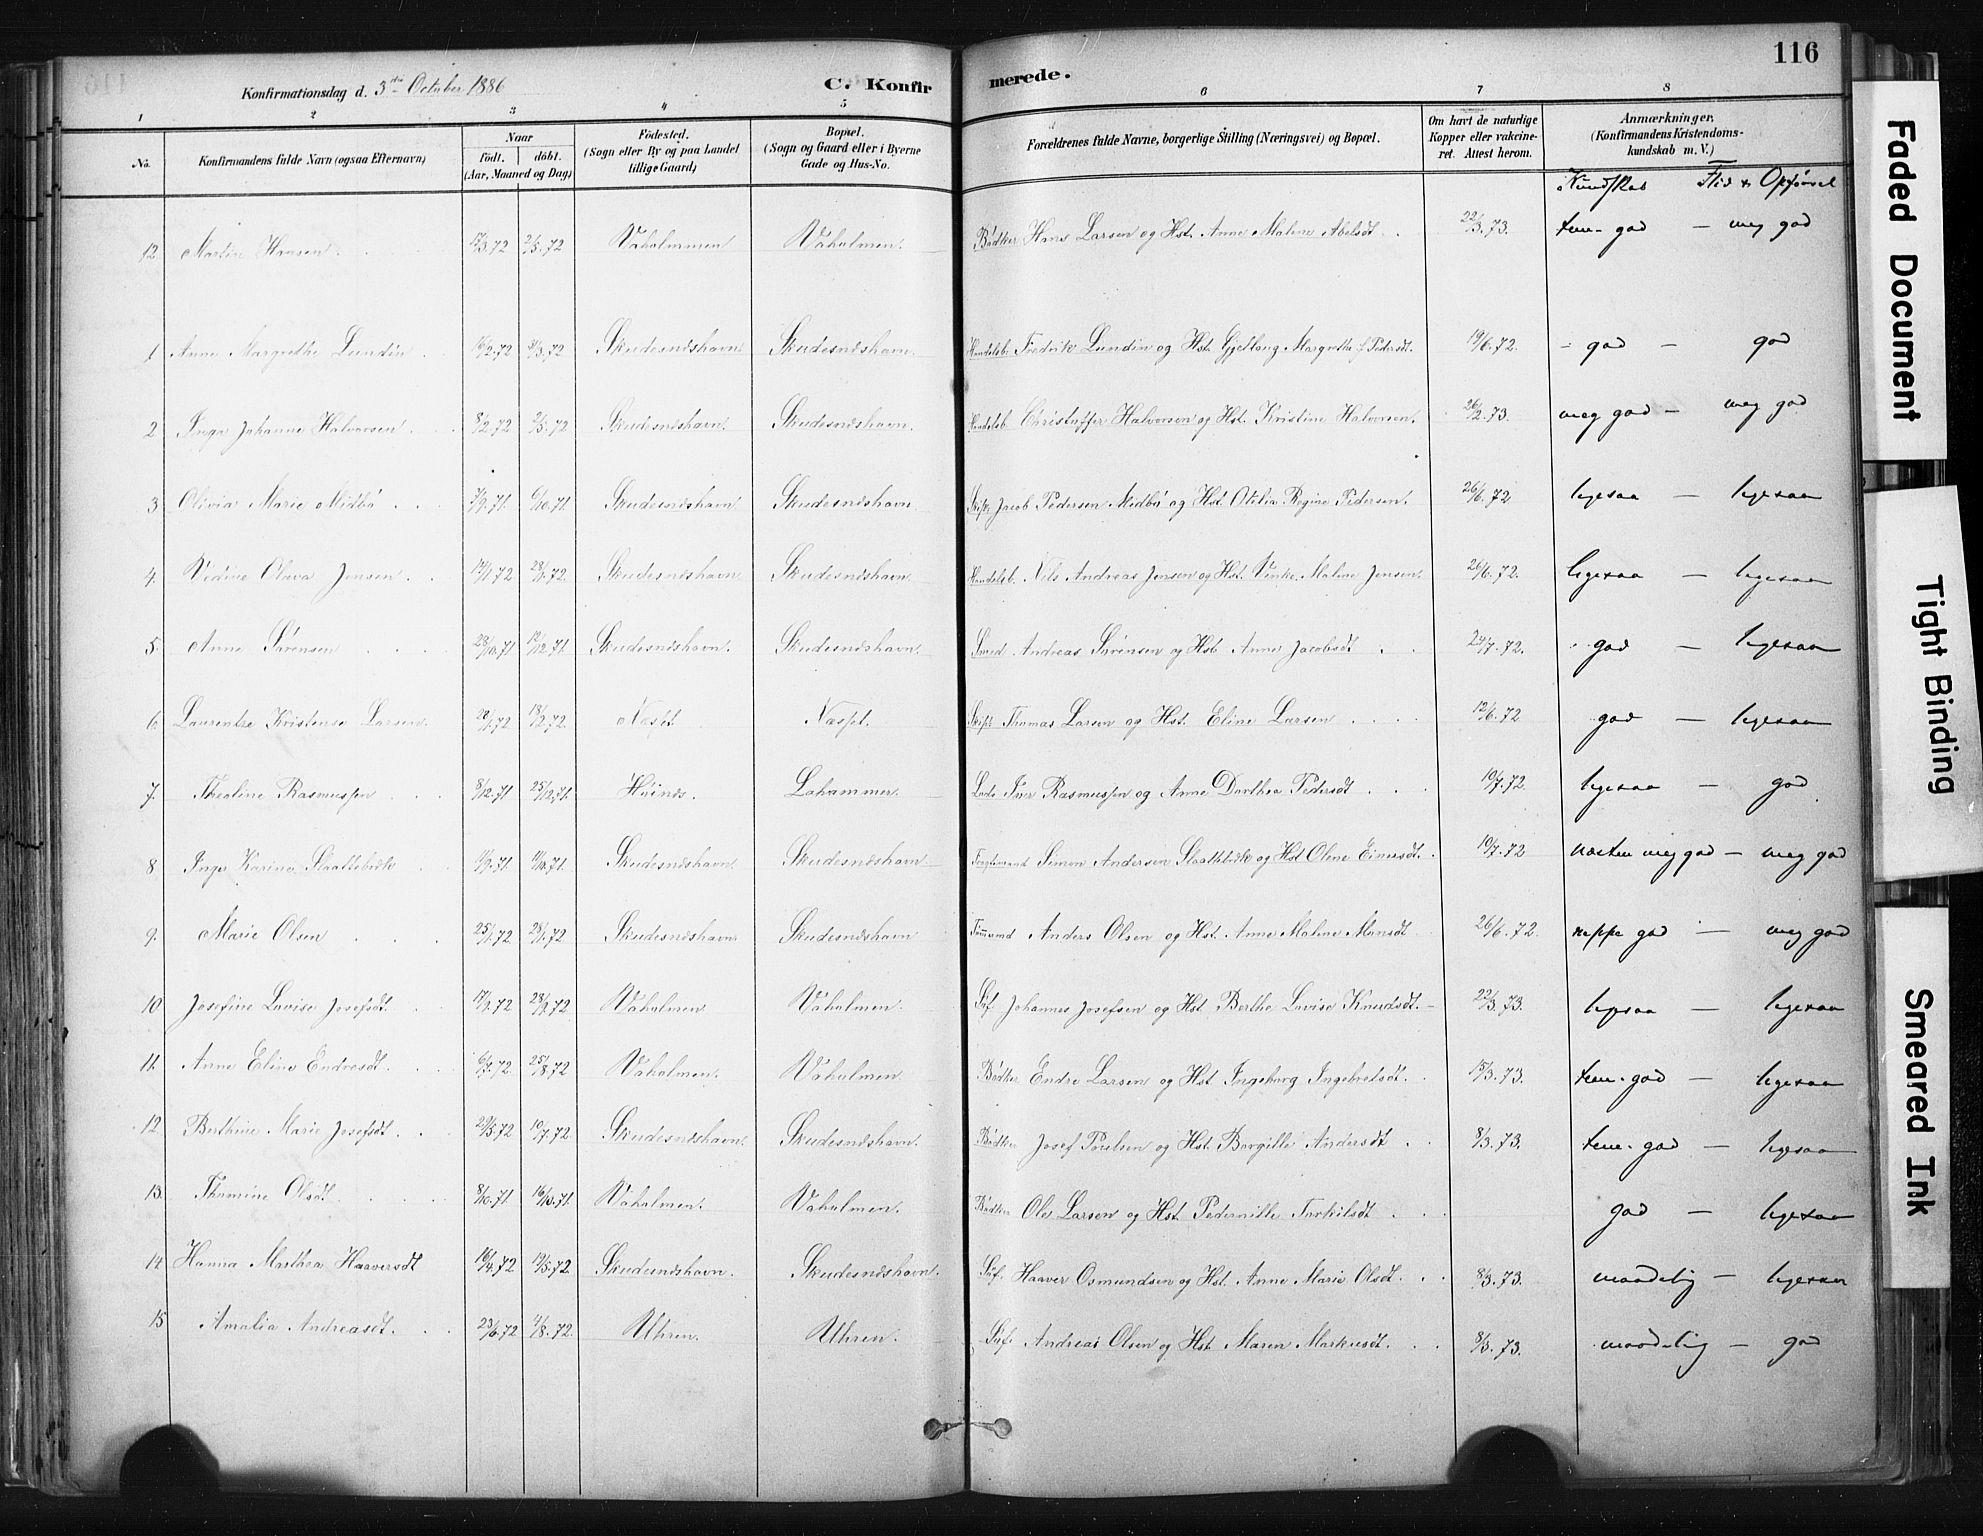 116
Konfirmationsdag d. 3die October 1886 C. Konfirmerede.
1 2 3 4 5 6 7 8
No. Konfirmandens fulde Navn (ogsaa Efternavn) Naar Födt. döbt. (Aar, Maaned og Dag) Födested. (Sogn eller By og paa Landet tillige Gaard) Bopæl. (Sogn og Gaard eller i Byerne Gade og Hus-No. Forældrenes fulde Navne, borgerlige Stilling (Næringsvei) og Bopæl. Om havt de naturlige Kopper eller vakcineret. Attest herom. Anmærkninger. (Konfirmandens Kristendomskundskab m. V.)
Kundskab Flid & Opförsel
12. Martin Hansen 17/3.72 2/5.72 Vaholmen Vaholmen. Bödker Hans Larsen og Hst. Anne Maline Abelsdt. 22/3.73. tem- god – meg god
1 Anne Margrethe Lundin 16/2.72 /3.72 Skudesneshavn Skudesneshavn Handelsb. Fredrik Lundin og Hst. Gjellaug Margrethe f. Pedersdt. 19/6.72. - god – god
2 Inga Johanne Halvorsen 8/2.72 2/5.72 Skudesneshavn. Skudesneshavn. Handelsb. Christoffer Halvorsen og Hst. Kristine Halvorsen. 26/2.73. meg god – meg god
3 Olivia Marie Midbö 3/9.71. 6/10.71. Skudesneshavn Skudesneshavn Skipr. Jacob Pedersen Midbö og Hst. Otilia Regine Pedersen. 26/6.72 ligesaa – ligesaa
4. Vedine Olava Jensen 14/1.72 28/1.72. Skudesneshavn Skudesneshavn. Handelsb. Nils Andreas Jensen og Hst. Vinke Maline Jensen. 26/6.72. ligesaa – ligesaa
5. Anne Sörensen 28/10.71 12/12.71. Skudesneshavn. Skudesneshavn. Smed Andreas Sörensen og Hst. Anne Jacobsdt 24/7.72. god – ligesaa
6. Laurentze Kristense Larsen 20/1.72 18/2.72. Næset Næset. Skipr. Thomas Larsen og Hst. Eline Larsen 12/6.72 god – ligesaa
7. Thealine Rasmussen 8/12.71 25/12.71. Höines. Lahammer. Iver Rasmussen og Anne Dorthea Pedersdt 10/7.72. ligesaa god
8 Inga Karina Slaattebræk /9.71. /10.71. Skudesneshavn Skudesneshavn Simon Andersen Slaattebræk og Hst Olene Einersdt. 10/7.72 næsten meg god – meg god
9. Marie Olsen 25/1.72 28/1.72 Skudesneshavn Skudesneshavn Tömmermd Anders Olsen og Hst. Anne Maline Monsdt 26/6.72. neppe god – meg god
10 Josefine Lovise Josefsdt 17/2.72 28/2.72 Vaholmen Vaholmen. Söf. Johannes Josefsen og Hst. Berthe Lovise Knudsdt. 22/3.73. ligesaa – ligesaa
11. Anne Eline Endresdt. 6/7.72 25/8.72 Vaholmen. Vaholmen. Bödker Endre Larsen og Hst Ingeborg Ingebretsdt. 15/3.73. tem-god – ligesaa
12. Berthine Marie Josefsdt. 29/5.72 10/7.72 Skudesneshavn. Skudesneshavn. Bödker Josef Poulsen og Hst Borgille Andersdt 8/3.73. tem-god – ligesaa
13. Thomine Olsdt 8/10.71 16/10.71. Vaholmen. Vaholmen. Bödker Ole Larsen og Hst. Pedernille Torkilsdt god – ligesaa
14. Hanna Marthea Haaversdt 16/4.72 19/5.72. Skudesneshavn. Skudesneshavn. Söf. Haaver Osmundsen og Hst. Anne Marie Olsdt. 8/3.73. maadelig – ligesaa
15 Amalia Andreasdt. 23/6.72 4/8.72. Uhren. Uhren. Söf. Andreas Olsen og Hst. Maren Markusdt. 8/3.73. maadelig – god
Faded Document
Tight Binding
Smeared Ink